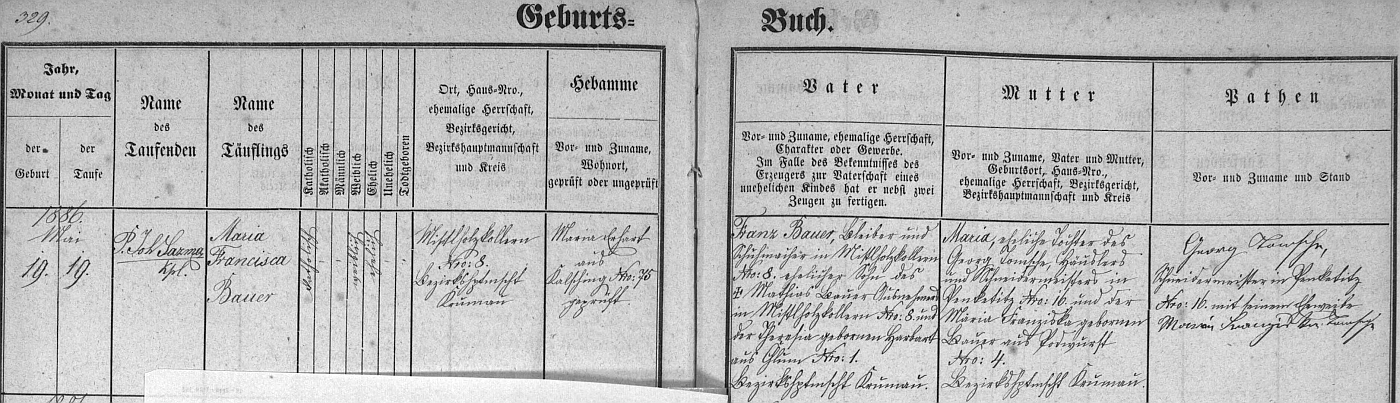 329.
Geburts=
Buch.
Jahr,
Monat und Tag
der
Geburt
der
Taufe
Name
des
Taufenden
Name
des
Täuflings
Katholisch
Akatholisch
Männlich
Weiblich
Ehelich
Unehelich
Todtgeboren
Ort, Haus-Nro.,
ehemalige Herrschaft,
Bezirksgericht,
Bezirkshauptmannschaft
und Kreis
Hebamme
Vor- und Zuname,
Wohnort,
geprüft oder ungeprüft
Vater
Vor- und Zuname, ehemalige Herrschaft,
Charakter oder Gewerbe.
Im Falle des Bekenntnisses des
Erzeugers zu Vaterschaft eines
unehelichen Kindes hat er nebst zwei
Zeugen zu fertigen.
Mutter
Vor- und Zuname, Vater und Mutter,
Geburtsort, Haus-Nro.,
ehemalige Herrschaft, Bezirksgericht,
Bezirkshauptmannschaft und Kreis
Pathen
Vor- und Zuname und Stand
1886.
Mai
19. 19.
P. Joh.
Kpl.
Maria
Francisca
Bauer
Katholisch
Ehelich
Mistlholzkollern
Nro: 8.
Bezirkshptmscht
Krumau
Maria Erhart
aus
Kalsching Nro: 75
geprüft
Franz Bauer, Bleiber und
Schuhmacher in Mistlholzkollern
Nro: 8. ehelicher Sohn des
Mathias Bauer Ausnehmers
in Mistlholzkollern Nro: 8. und
der Theresia gebornen Harbart
aus Glum Nro: 1.
Bezirkshptmscht Krumau.
Maria, eheliche Tochter des
Georg Tomsche, Häuslers
und Schneidermeisters in
Penketitz Nro: 16. und der
Maria Franziska gebornen
Bauer aus Porwurst
Nro: 4.
Bezirkshptmscht Krumau.
Georg Tomsche,
Schneidermeister in Penketitz
Nro: 16. mit seinem Eheweibe
Maria Franziska Tomsche